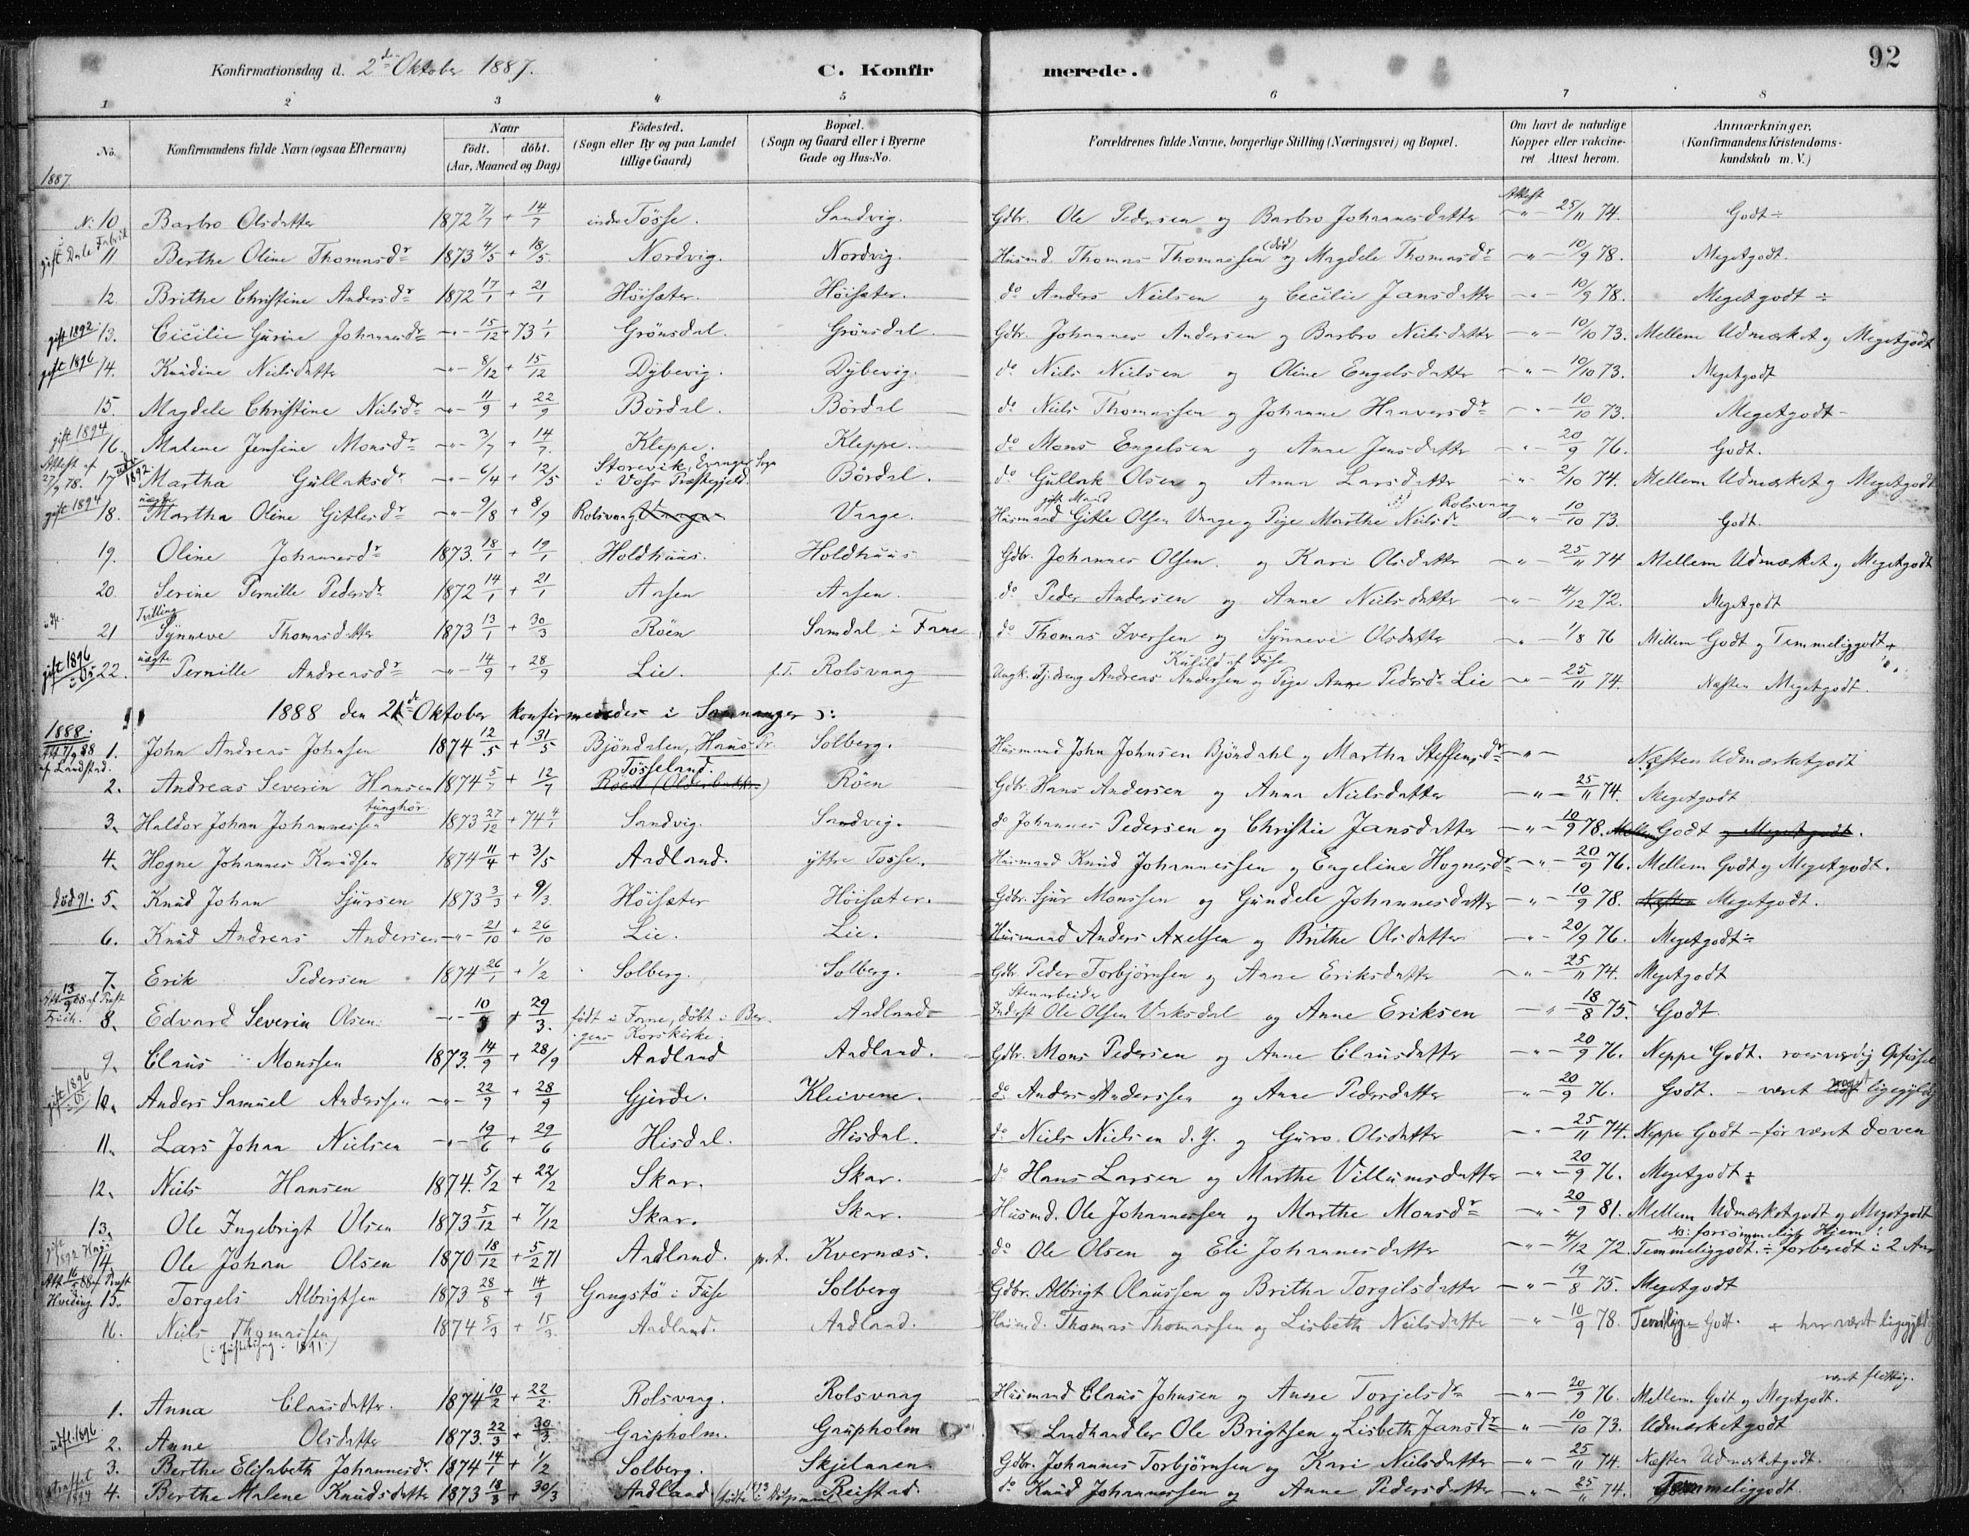 Konfirmationsdag d. 2de Oktober 1887. C. Konfirmerede. 92
1 2 3 4 5 6 7 8
No. Konfirmandens fulde Navn (ogsaa Efternavn) Naar født. døbt. (Aar, Maaned og Dag) Fødested. (Sogn eller By og paa Landet tillige Gaard) Bopæl. (Sogn og Gaard eller i Byerne Gade og Hus-No. Forældrenes fulde Navne, borgerlige Stilling (Næringsvei) og Bopæl. Om havt de naturlige Kopper eller vakcineret Attest herom. Anmærkninger. (Konfirmandens Kristendomskundskab m. V.)
1887.
N. 10 Barbro Olsdatter 1872 7/7 + 14/7 indre Tösse. Sandvig. Gdbr. Ole Pedersen og Barbro Johannesdatter Attest -"- 25/11 74. Godt ÷
gift Dale Fabrik 11 Berthe Oline Thomasdr 1873 4/5 + 18/5 Nordvig. Nordvig. Husmd. Thomas Thomassen (død) og Magdele Thomasdr -"- 10/9 78. Megetgodt.
12. Brithe Christine Andersdr 1872 17/1 + 21/1 Höisæter. Höisæter. do Anders Nielsen og Cecilie Jansdatter -"- 10/9 78. Megetgodt ÷
gift 1892. 13. Cicilie Gurine Johannesdr -"- 15/12 + 73 1/1 Grönsdal. Grönsdal. Gdbr. Johannes Andersen og Barbro Nielsdatter -"- 10/10 73. Mellem Udmærket og Megetgodt
gift 1896 14. Knudine Nielsdatter -"- 8/12 + 15/12 Dybevig. Dybevig. do Niels Nielsen og Oline Engelsdatter -"- 10/10 73. Megetgodt
15. Magdele Christine Nielsdr -"- 11/9 + 22/9 Bördal. Bördal do Niels Thomassen og Johanne Haaversdr -"- 10/10 73. Megetgodt-
gift 1894 16. Malene Jensine Monsdr -"- 3/7 + 14/7. Kleppe. Kleppe. do Mons Engelsen og Anne Jensdatter -"- 20/9 76. Godt.
Attest af 27/9 78. 17 1892. Martha Gullaksdr -"- 6/4 + 12/5 Storevik, Evanger Sogn i Voss Præstegjeld. Bördal. do Gullak Olsen og Anna Larsdatter -"- 2/10 74. Mellem Udmærket og Megetgodt
gift 1894 18. uægte Martha Oline Gitlesdr -"- 9/8 + 8/9 Rolsvaag Vaage. Husmand gift Mand Gitle Olsen Vaage og Pige Marthe Nielsdr Rolsvaag -"- 10/10 73. Godt.
19. Oline Johannesdr 1873. 18/1 + 19/1 Holdhuus. Holdhuus Gdbr. Johannes Olsen og Kari Olsdatter -"- 25/11 74 Mellem Udmærket og Megetgodt
20. Serine Pernille Pedersdr 1872 14/1 + 21/1 Aasen Aasen. do Peder Andersen og Anne Nielsdatter -"- 4/12 72. Megetgodt
21 Tvilling Synneve Thomasdatter 1873 13/1 + 30/3 Röen Samdal i Fane do Thomas Iversen og Synnevi Olsdatter -"- 1/8 76 Mellem Godt og Temmeliggodt +
gift 1896 22. uægte Pernille Andreasdr -"- 14/9 + 28/9 Lie. f.T. Rolsvaag Ungk. Tj.dreng Andreas Andersen og Pige Anne Pedersdr Lie -"- 25/11 74. Næsten Megetgodt.
1888 den 21de Oktober konfirmeredes i Samnanger:
1888.
Att. 7/9 88 af Landstad. 1. John Andreas Johnsen 1874 12/5 + 31/5 Bjöndalen, Haus Pr. Solberg. Husmand John Johnsen Bjöndahl og Martha Steffensdr -"- Næsten Udmærketgodt
2. Andreas Severin Hansen 1874 5/7 + 12/7 Tösseland. Röen Gdbr. Hans Andersen og Anna Nielsdatter -"- 25/11 74. Megetgodt
3. Haldor Johan Johannessen tunghör. 1873 27/12 + 74 4/1 Sandvig. Sandvig. do Johannes Pedersen og Christie Jansdatter -"- 10/9 78. Mellem Godt og Megetgodt.
4. Hogne Johannes Knudsen 1874 11/4 + 3/5 Aadland. ytre Tösse. Husmand Knud Johannessen og Engeline Hognesdr -"- 20/9 76. Mellem Godt og Megetgodt.
död 91. 5. Knud Johan Sjursen 1873 3/3 + 9/3. Höisæter Höisæter. Gdbr. Sjur Monssen og Gundele Johannesdatter -"- 10/9 78. Næsten Megetgodt.
6. Knud Andreas Andersen -"- 21/10 + 26/10 Lie. Lie. Husmand Anders Axelsen og Brithe Olsdatter -"- 20/9 76. Megetgodt ÷
7. Erik Pedersen 1874 26/1 + 1/2 Solberg. Solberg. Gdbr Peder Torbjørnsen og Anne Eriksdatter -"- 25/11 74. Megetgodt
Att. 13/9 88 af Præst Frich. 8. Edvard Severin Olsen -"- 10/3 + 29/3. født i Fane, döbt i Bergens Korskirke Aadland Stenarbeider Inderst Ole Olsen Vaksdal og Anne Eriksen -"- 18/8 75. Godt.
9. Claus Monssen 1873. 14/9 + 28/9 Aadland Aadland. Gdbr. Mons Pedersen og Anne Clausdatter -"- 20/9 76. Neppe Godt. rosværdig Opførsel
gift 1896 10. Anders Samuel Anderssen -"- 22/9 + 28/9 Gjerde. Kleivene. do Anders Anderssen og Anne Pedersdatter -"- 20/9 76. Godt. - været noget ligegyldig
11. Lars Johan Nielsen -"- 19/6 + 29/6 Hisdal. Hisdal. do Niels Nielsen d. Y. og Guro Olsdatter -"- 25/11 74. Neppe Godt - för været doven
12. Niels Hansen 1874. 5/2 + 22/2 Skar. Skar. do Hans Larsen og Marthe Villumsdatter -"- 20/9 76. Megetgodt ÷
13. Ole Ingebrigt Olsen 1873 5/12 + 7/12 Skar. Skar. Husmd. Ole Johannessen og Marthe Monsdr -"- 20/9 81. Mellem Udmærketgodt og Megetgodt
gift 1892 Haus 14. Ole Johan Olsen 1870 18/12 + 5/2 71 Aadland. p.t. Kvernæs. do Ole Olsen og Eli Johannesdatter -"- 4/12 72. Temmeliggodt. ÷ forberedt i 2 Aar Ns: forsømmelig Hjem!
Att. 16/5 88 af Præst Hveding 15. Torgels Albrigtsen 1873 28/8 + 14/9 Gangstö i Fuse Solberg Gdbr. Albrigt Olaussen og Britha Torgilsdatter -"- 19/8 75. Megetgodt
16. Niels Thomassen 1874 5/3 + 15/3. Aadland. Aadland. Husmd. Thomas Thomassen og Lisbeth Nielsdatter -"- 10/9 78. Temmelig Godt. + har været ligegyldig
(: Justitssag: 1891.)
1. Anna Clausdatter. 1874 10/2 + 22/2. Rolsvaag. Rolsvaag Husmand Claus Johnsen og Anne Torjelsdr -"- 20/9 76. Mellem Godt og Megetgodt. været flittig.
udfl. 1896 2. Anne Olsdatter 1873. 22/3 + 30/3. Gripholm. Gripholm Landhandler Ole Brigtsen og Lisbeth Jansdr -"- 10/10 73. Udmærketgodt
3. Berthe Elisabeth Johannesdr. 1874 14/1 + 1/2 Solberg. Skjelaaen Gdbr. Johannes Torbjørnsen og Kari Nielsdatter -"- 25/11 74. Næsten Udmærketgodt.
straffet 1894 4. Berthe Malene Knudsdatter 1873 18/3 + 30/3 Aadland Reistad do Knud Johannessen og Anne Pedersdatter -"- 25/11 74. Temmeliggodt.